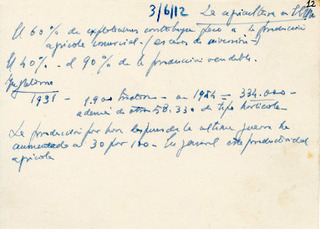 12
3/6/12 La agricultura en
El 60% de explotaciones contribuyen poco a la producción
agrícola comercial. (es caso de inversión)
El 40% - el 90% de la producción vendible.
Inglaterra
1931 - 1.900 tractores - en 1954 - 334.000 -
además de 58.330 de tipo hortícola
La producción por hora después de la última guerra ha
aumentado a 30 por 100. En general en productividad
agrícola